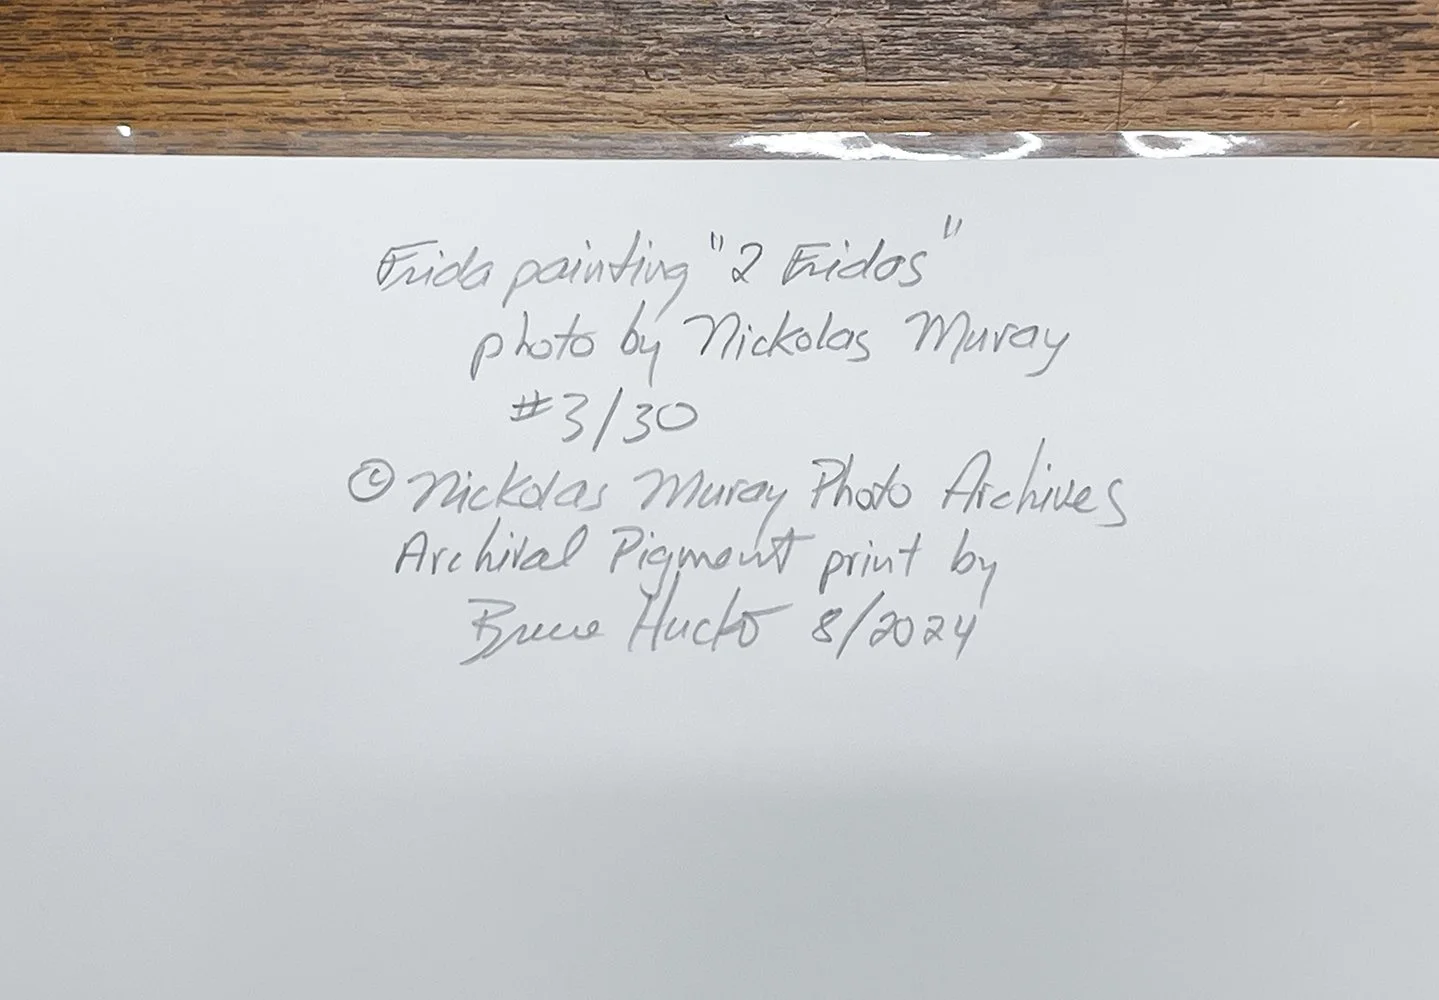 Frida painting "2 Fridas"
photo by Nickolas Muray
#3/30
© Nickolas Muray Photo Archives
Archival Pigment print by
Bruce Hucko 8/2024